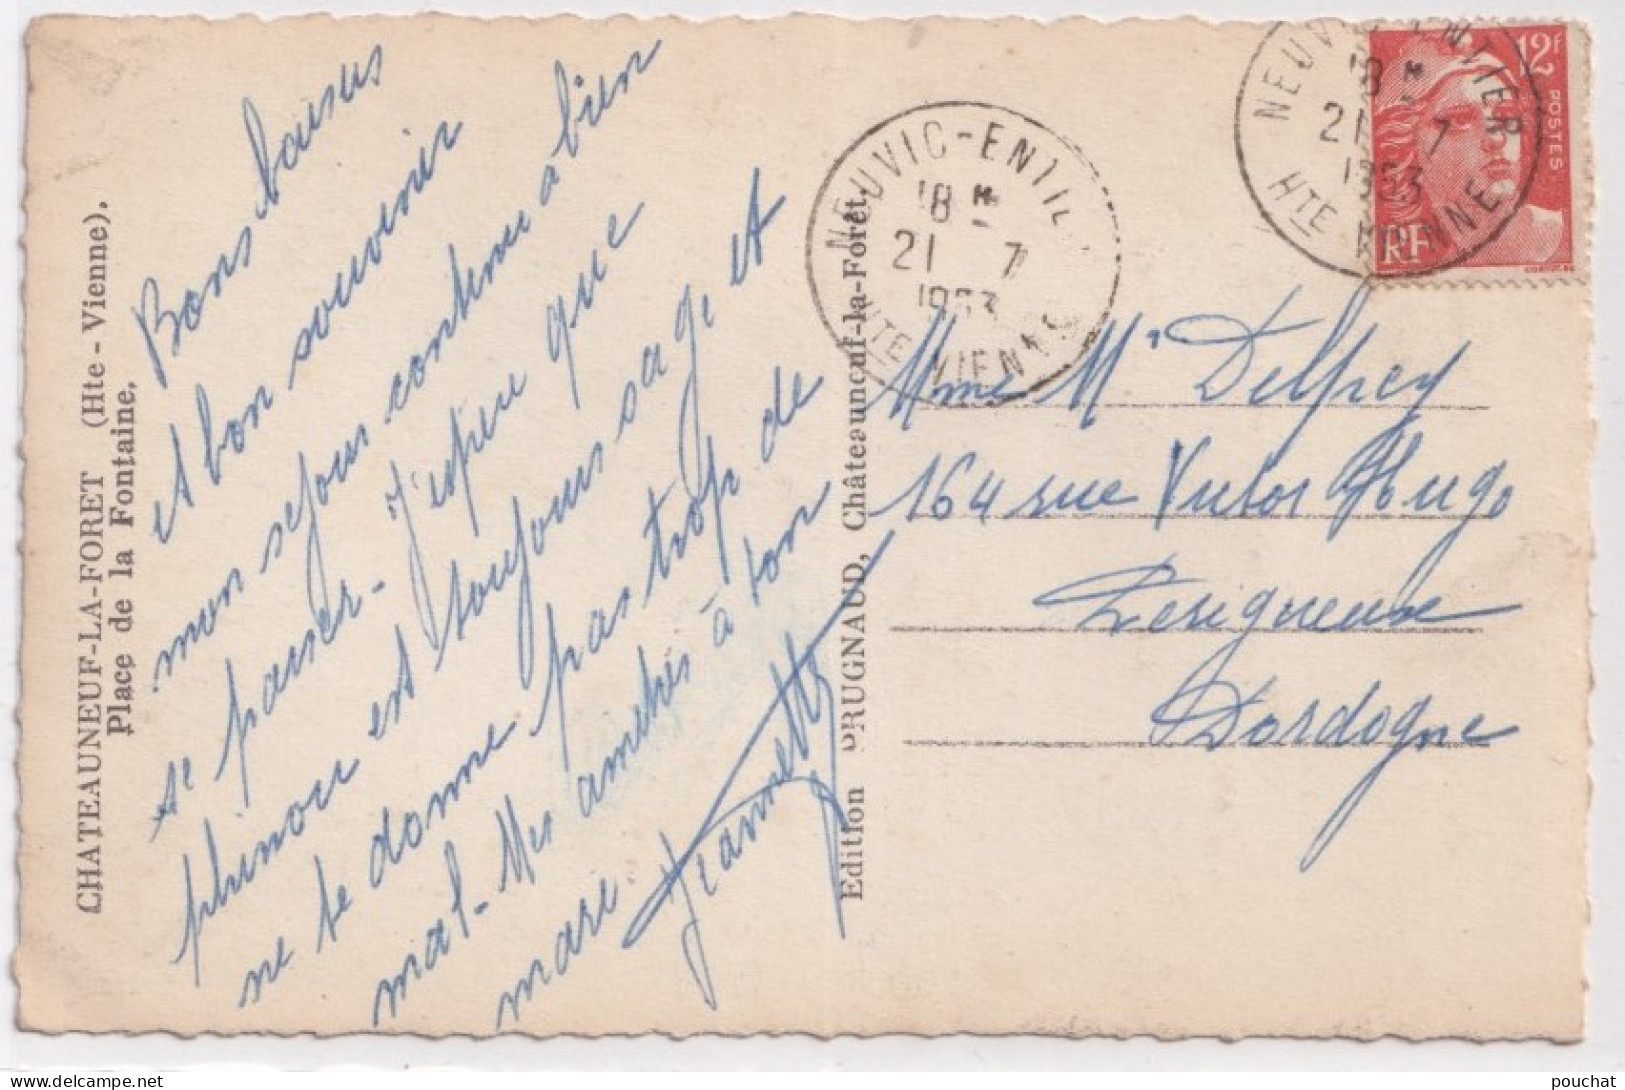 CHATEAUNEUF-LA-FORET (Hte - Vienne).
Place de la Fontaine.
Bons baisers
et bon souvenir
mon sejour contenu a bien
se passer - J'espere que
phinou est toujours sage et
ne te donne pas trop de
mal - Mes amitiés à ton
mari. Jeannette
Edition PRUGNAUD, Châteauneuf-la-Forêt.
NEUVIC-ENTIER
18 H
21 7
1953
HTE VIENNE
NEUVIC-ENTIER
18 H
21 7
1953
HTE VIENNE
12F
POSTES
RF
Mme Mr Delprey
164 rue Victor Hugo
Perigueux
Dordogne
pouchat